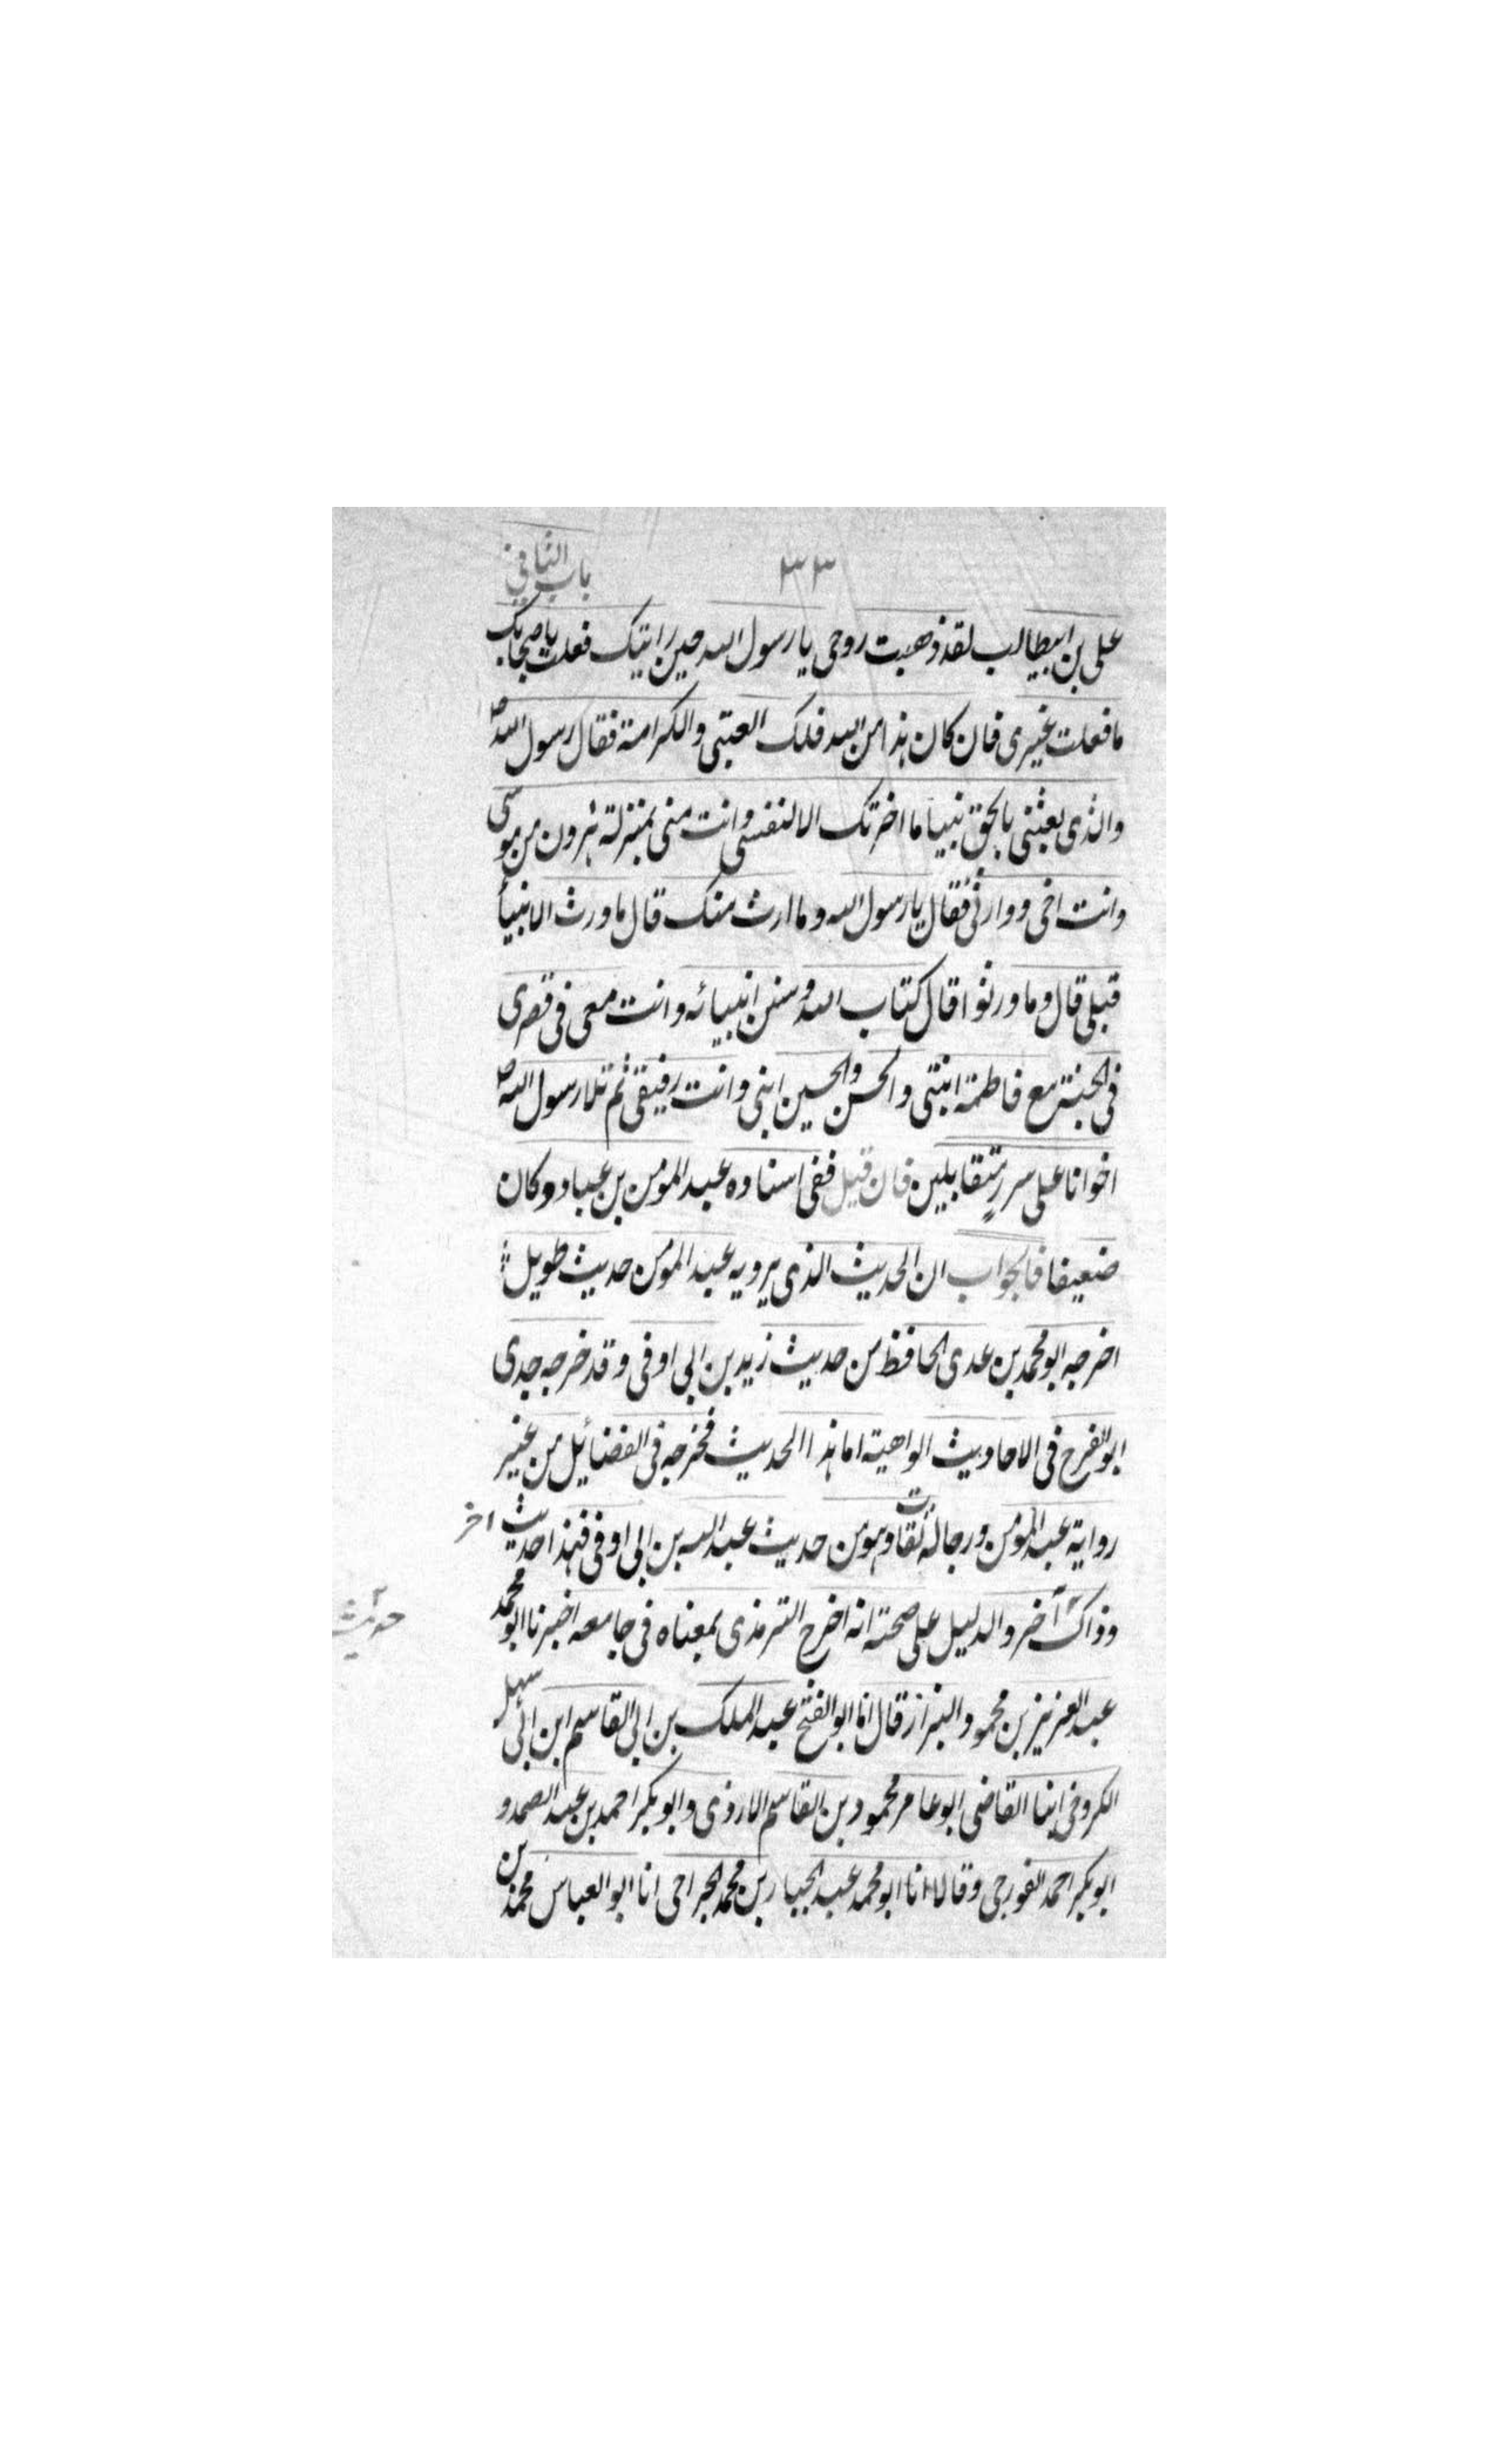 ٣٣
باب الثاني
علی بن ابیطالب لقد ذهبت روحی یا رسول الله حین رایتک فعلت باصحابک
ما فعلت غیری فان کان هذا من الله فلک العتبی والکرامة فقال رسول الله ص
والذی بعثنی بالحق نبیا ما اخرتک الا لنفسی وانت منی بمنزلة هرون من موسی
وانت اخی ووارثی فقال یا رسول الله وما ارث منک قال ما ورث الانبیأ
قبلی قال وما ورثوا قال کتاب الله وسنن انبیائه وانت معی فی قصری
فی الجنة مع فاطمة ابنتی والحسن والحسین ابنی وانت رفیقی ثم تلا رسول الله ص
اخوانا علی سرر متقابلین فان قیل ففی اسناده عبد المومن بن عباد وکان
ضعیفا فالجواب ان الحدیث الذی یرویه عبد المومن حدیث طویل
اخرجه ابو محمد بن عدی الحافظ من حدیث زید بن ابی اوفی وقد خرجه جدی
ابو الفرج فی الاحادیث الواهیة اما هذا الحدیث فخرجه فی الفضائل من غیر
روایة عبد المومن ورجاله ثقات وهو من حدیث عبد الله بن ابی اوفی فهذا حدیث اخر
وذاک آخر والدلیل علی صحته انه اخرج الترمذی بمعناه فی جامعه اخبرنا ابو محمد
عبد العزیز بن محمود البزاز قال انا ابو الفتح عبد الملک بن ابی القاسم ابن ابی سهل
الکروخی ابنا القاضی ابو عامر محمود بن القاسم الازدی وابو بکر احمد بن عبد الصمد و
ابو بکر احمد الغورجی وقالا انا ابو محمد عبد الجبار بن محمد الجراحی انا ابو العباس محمد بن